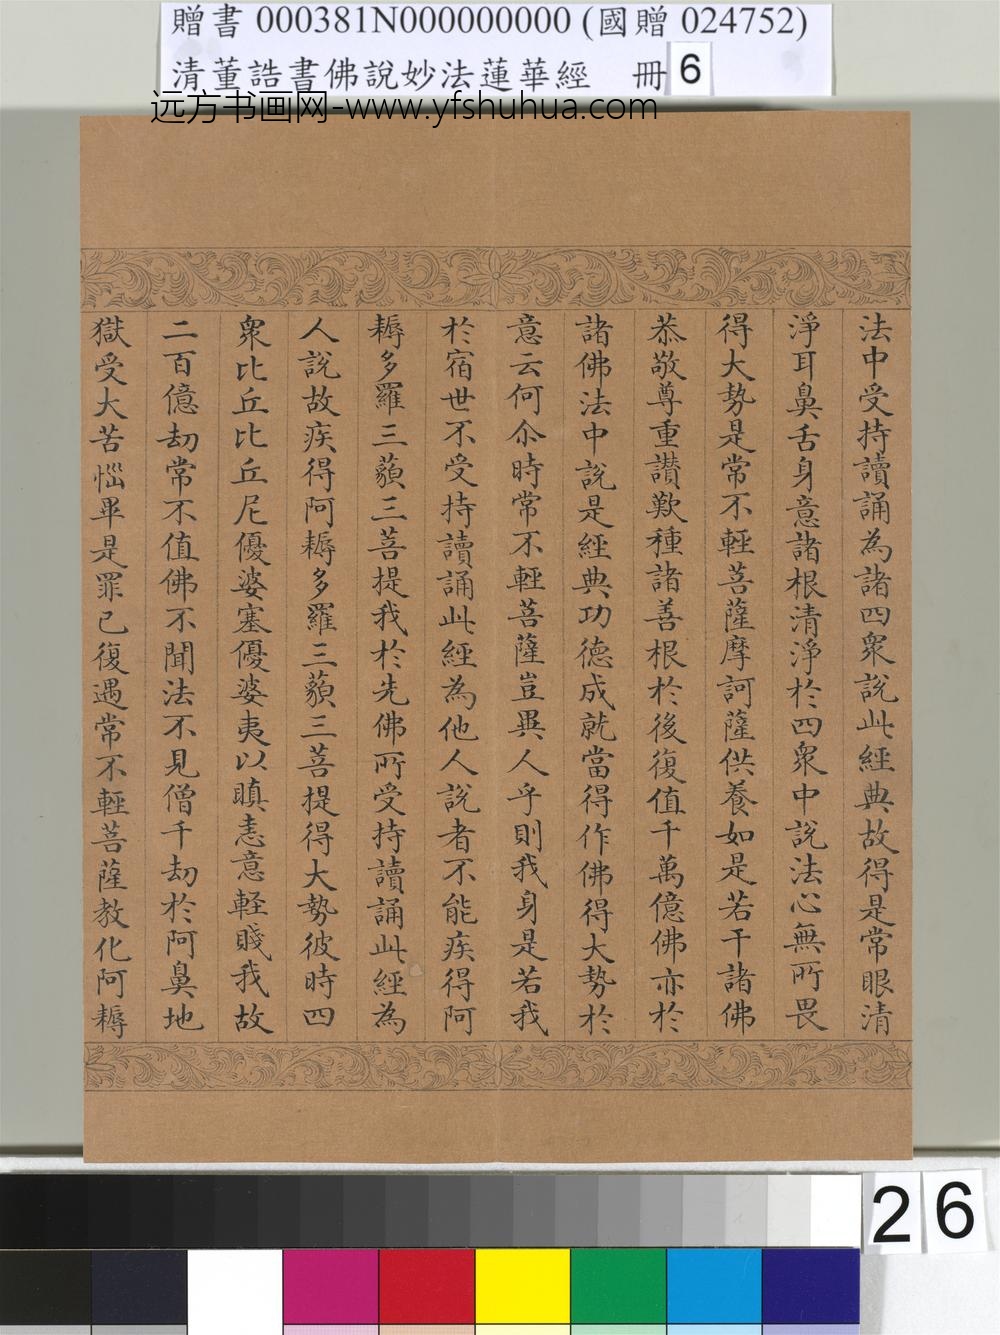 贈書 000381N000000000 (國贈 024752)
清董誥書佛說妙法蓮華經 冊 6
远方书画网-www.yfshuhua.com
法中受持讀誦為諸四眾說此經典故得是常眼清
淨耳鼻舌身意諸根清淨於四眾中說法心無所畏
得大勢是常不輕菩薩摩訶薩供養如是若干諸佛
恭敬尊重讃歎種諸善根於後復值千萬億佛亦於
諸佛法中說是經典功德成就當得作佛得大勢於
意云何尒時常不輕菩薩豈異人乎則我身是若我
於宿世不受持讀誦此經為他人說者不能疾得阿
耨多羅三藐三菩提我於先佛所受持讀誦此經為
人說故疾得阿耨多羅三藐三菩提得大勢彼時四
眾比丘比丘尼優婆塞優婆夷以瞋恚意輕賤我故
二百億劫常不值佛不聞法不見僧千劫於阿鼻地
獄受大苦惱畢是罪已復遇常不輕菩薩教化阿耨
26